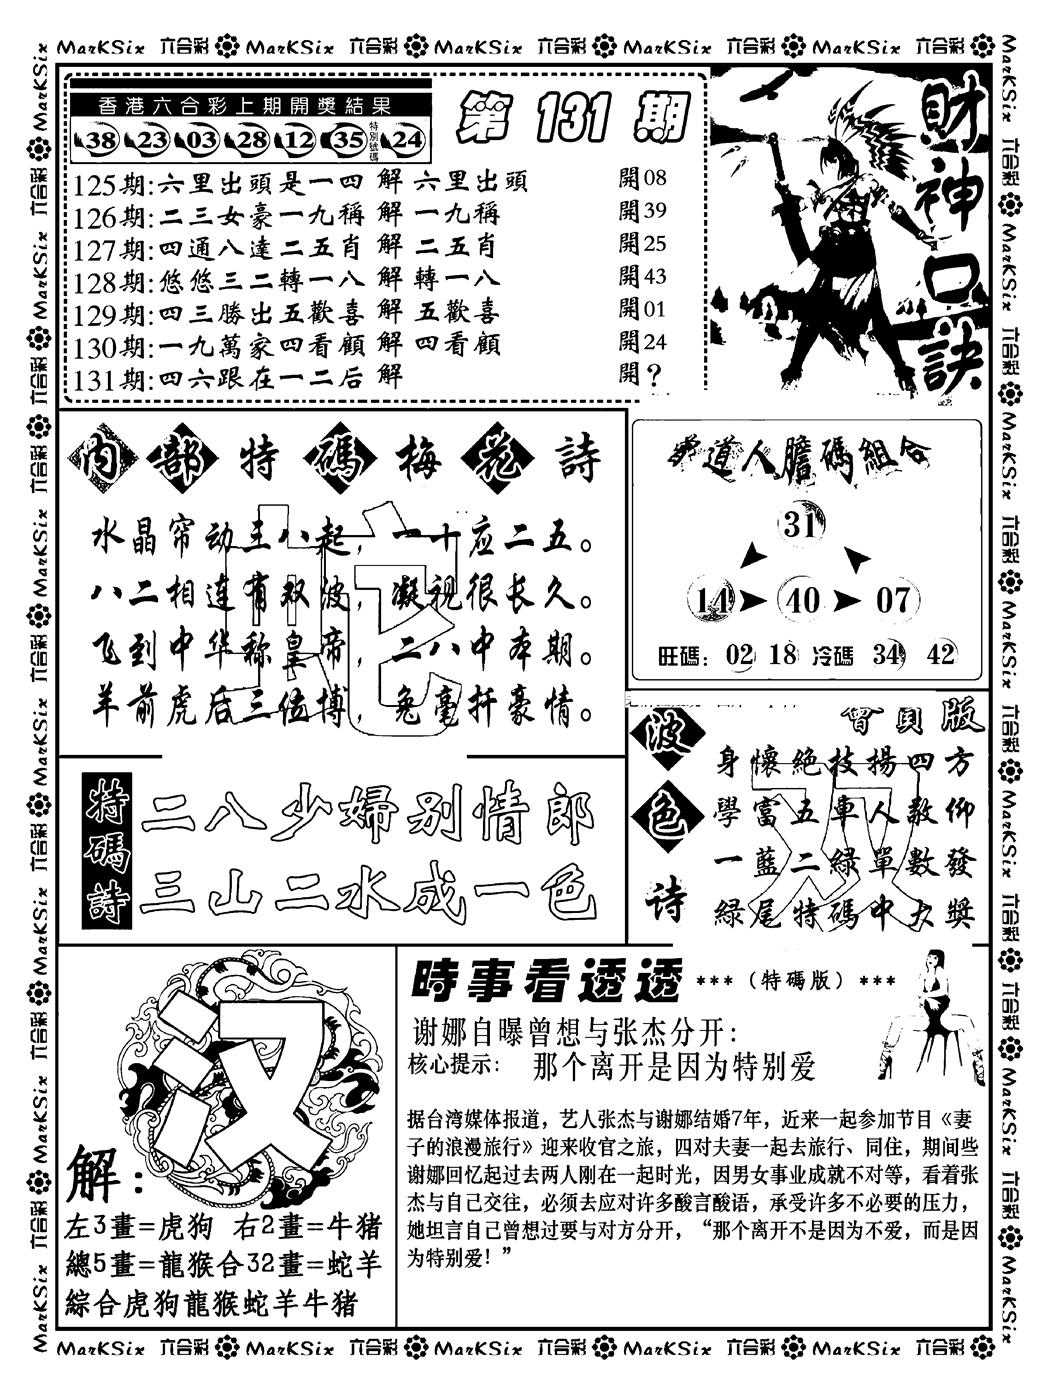 MarKSix 六合彩 MarKSix 六合彩 MarKSix 六合彩 MarKSix 六合彩 MarKSix 六合彩
香港六合彩上期開獎結果
38 23 03 28 12 35 特別號碼 24
第 131 期
125期:六里出頭是一四 解 六里出頭 開08
126期:二三女豪一九稱 解 一九稱 開39
127期:四通八達二五肖 解 二五肖 開25
128期:悠悠三二轉一八 解 轉一八 開43
129期:四三勝出五歡喜 解 五歡喜 開01
130期:一九萬家四看顧 解 四看顧 開24
131期:四六跟在一二后 解 開?
財神口訣
內部特碼梅花詩
水晶帘动王八起，一十应二五。
八二相连有双波，凝视很长久。
飞到中华称皇帝，二八中本期。
羊前虎后三位博，兔毫扦豪情。
道人膽碼組合
31
14 40 07
旺碼: 02 18 冷碼 34 42
特碼詩
二八少婦别情郎
三山二水成一色
波色诗
會員版
身懷絕技揚四方
學富五車人敬仰
一藍二綠單數發
綠尾特碼中大獎
汉
解:
左3畫=虎狗 右2畫=牛猪
總5畫=龍猴合32畫=蛇羊
綜合虎狗龍猴蛇羊牛猪
時事看透透 ***（特碼版）***
谢娜自曝曾想与张杰分开:
核心提示: 那个离开是因为特别爱
据台湾媒体报道，艺人张杰与谢娜结婚7年，近来一起参加节目《妻
子的浪漫旅行》迎来收官之旅，四对夫妻一起去旅行、同住，期间些
谢娜回忆起过去两人刚在一起时光，因男女事业成就不对等，看着张
杰与自己交往，必须去应对许多酸言酸语，承受许多不必要的压力，
她坦言自己曾想过要与对方分开，“那个离开不是因为不爱，而是因
为特别爱！”
MarKSix 六合彩 MarKSix 六合彩 MarKSix 六合彩 MarKSix 六合彩 MarKSix 六合彩